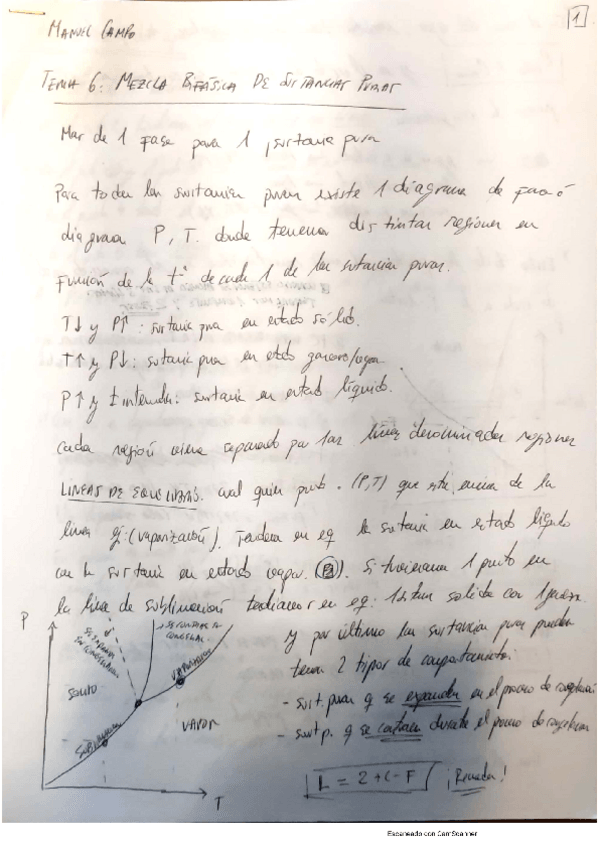 1
MANUEL CAMPO
TEMA 6: MEZCLA BIFÁSICA DE SUSTANCIAS PURAS
Mas de 1 fase para 1 sustancia pura
Para todas las sustancias puras existe 1 diagrama de fases ó
diagrama P, T. donde tenemos distintas regiones en
función de la tª de cada 1 de las sustancias puras.
T↓ y P↑: sustancia pura en estado sólido.
T↑ y P↓: sustancia pura en estado gaseoso/vapor.
P↑ y t intermedia: sustancia en estado líquido.
Cada región viene separada por las líneas denominadas regiones
LINEAS DE EQUILIBRIO. cualquier punto (P,T) que esté encima de la
línea ej: (vaporización). Tendremos en eq la sustancia en estado líquido
con la sustancia en estado vapor. Si tuvieramos 1 punto en
la línea de sublimación tendriamos en eq: 1 sistema solido con 1 gaseoso.
P
SE EXPANDE
SE CONTRAE AL
CONGELAR
VAPORIZACIÓN
SOLIDO
VAPOR
SUBLIMACIÓN
T
y por último las sustancias puras pueden
tener 2 tipos de comportamientos:
- sust. puras q se expanden en el proceso de congelación
- sust p. q se contraen durante el proceso de congelación
L = 2 + C - F ¡Recordar!
Escaneado con CamScanner